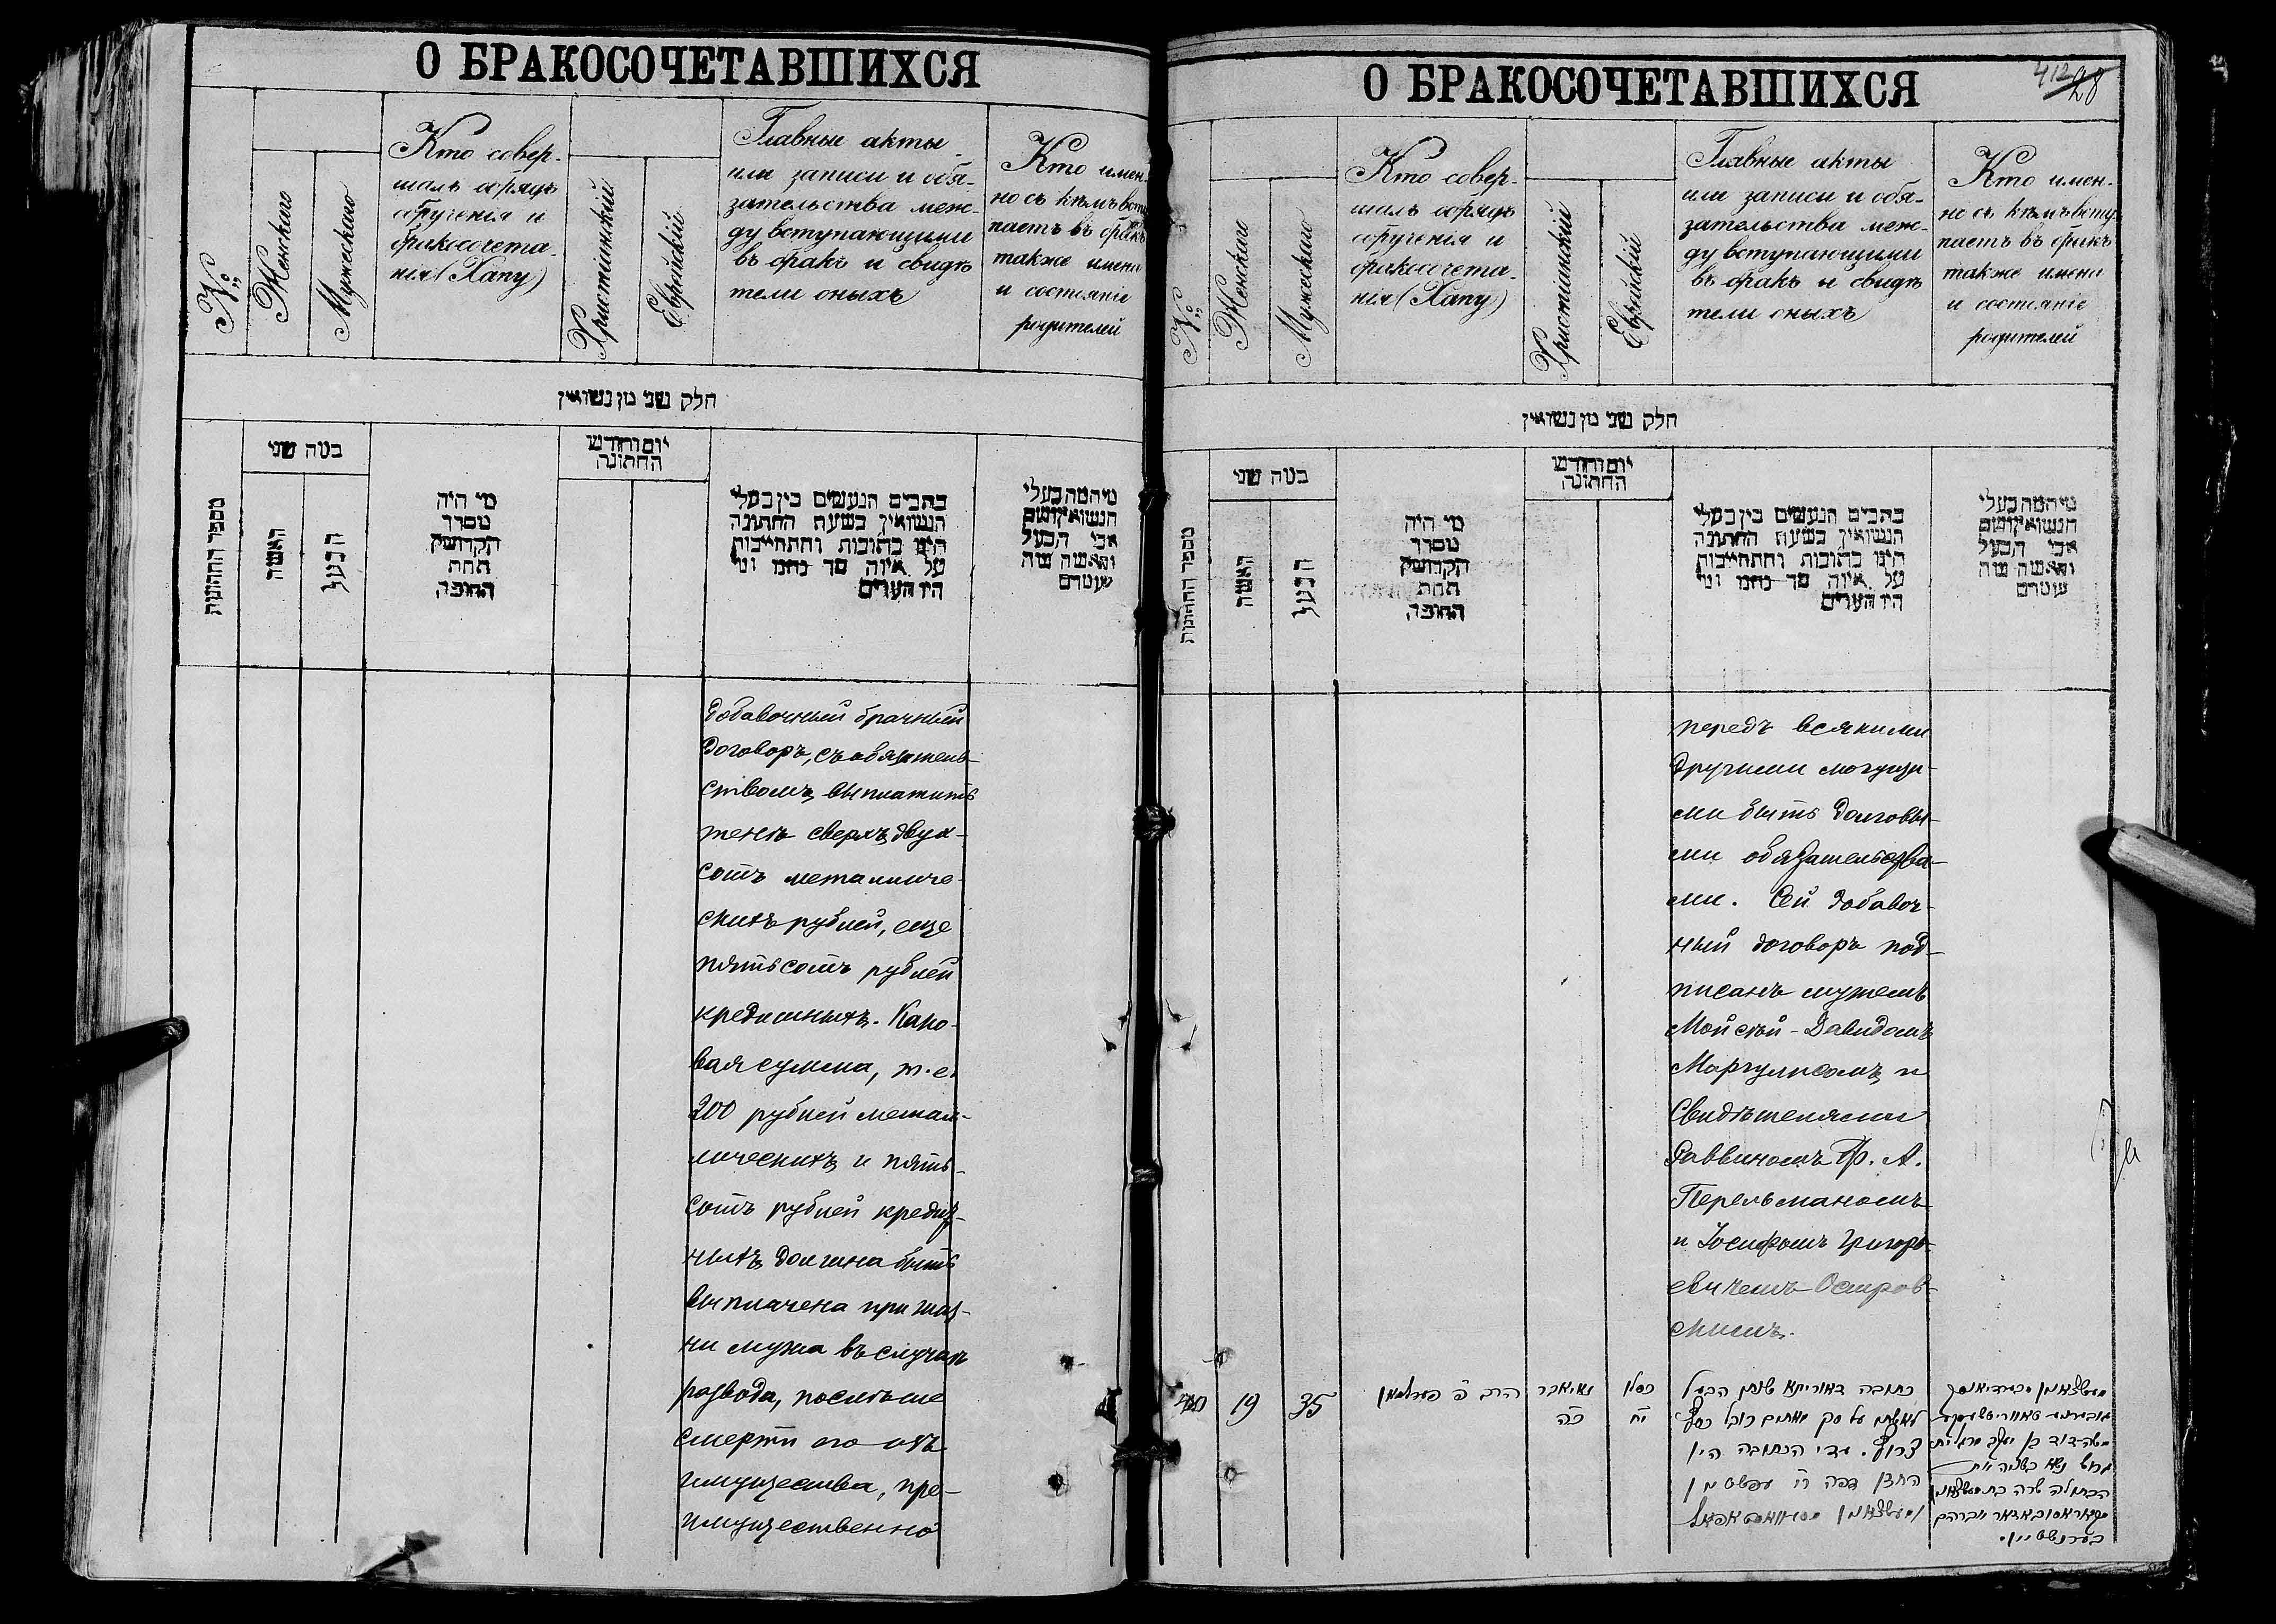 О БРАКОСОЧЕТАВШИХСЯ
№
Женскаго
Мужескаго
Кто совер-
шалъ обрядъ
обрученія и
бракосочета-
нія (Хапу)
Христіанскій
Еврейскій
Главные акты
или записи и обя-
зательства меж-
ду вступающими
въ бракъ и свидѣ
тели оныхъ
Кто имен-
но съ кѣмъ всту
паетъ въ бракъ
также имена
и состояніе
родителей
חלק שני מן נשואין
מספר החתונות
במה שני
האשה
הבעל
מי היה
מסדר
הקדושין
תחת
החופה
יום וחודש
החתונה
כתבים הנעשים בין בעלי
הנשואין בשעת החתונה
היינו כתובות והתחייבות
על איזה סך
היו העדים
אבי הבעל
добавочный брачный
договоръ, съ обязатель-
ствомъ, выплатить
женѣ сверхъ двух-
сотъ металличе-
скихъ рублей, еще
пятьсотъ рублей
кредитныхъ. Како-
вая сумма, т.е.
200 рублей метал-
лическихъ и пять-
сотъ рублей кредит-
ныхъ должна быть
выплачена при жиз-
ни мужа въ случаѣ
развода, послѣ же
смерти его изъ
имущества, пре-
имущественно
О БРАКОСОЧЕТАВШИХСЯ
412
28
№
Женскаго
Мужескаго
Кто совер-
шалъ обрядъ
обрученія и
бракосочета-
нія (Хапу)
Христіанскій
Еврейскій
Главные акты
или записи и обя-
зательства меж-
ду вступающими
въ бракъ и свидѣ
тели оныхъ
Кто имен-
но съ кѣмъ всту
паетъ въ бракъ
также имена
и состояніе
родителей
חלק שני מן נשואין
מספר החתונות
במה שני
האשה
הבעל
מי היה
מסדר
הקדושין
תחת
החופה
יום וחודש
החתונה
כתבים הנעשים בין בעלי
הנשואין בשעת החתונה
היינו כתובות והתחייבות
על איזה סך
היו העדים
אבי הבעל
передъ всякими
другими могущи-
ми быть долговы-
ми обязательства-
ми. Сей добавоч-
ный договоръ под-
писанъ мужемъ
Мойсей-Давидомъ
Маргулисомъ и
Свидѣтелями
Раввиномъ Ф. А.
Перельманомъ
и Іосифомъ Григорь-
евичемъ Остров-
скимъ.
19
35
הרב פ פערלמאן
כה
כסלו
יח
כתובה דאוריתא שנתן הבעל
לאשתו על סך מאתים רובל כסף
צרוף. עדי הכתובה היו
החזן דפה
משה-דוד בן יעקב
הבתולה שרה בת